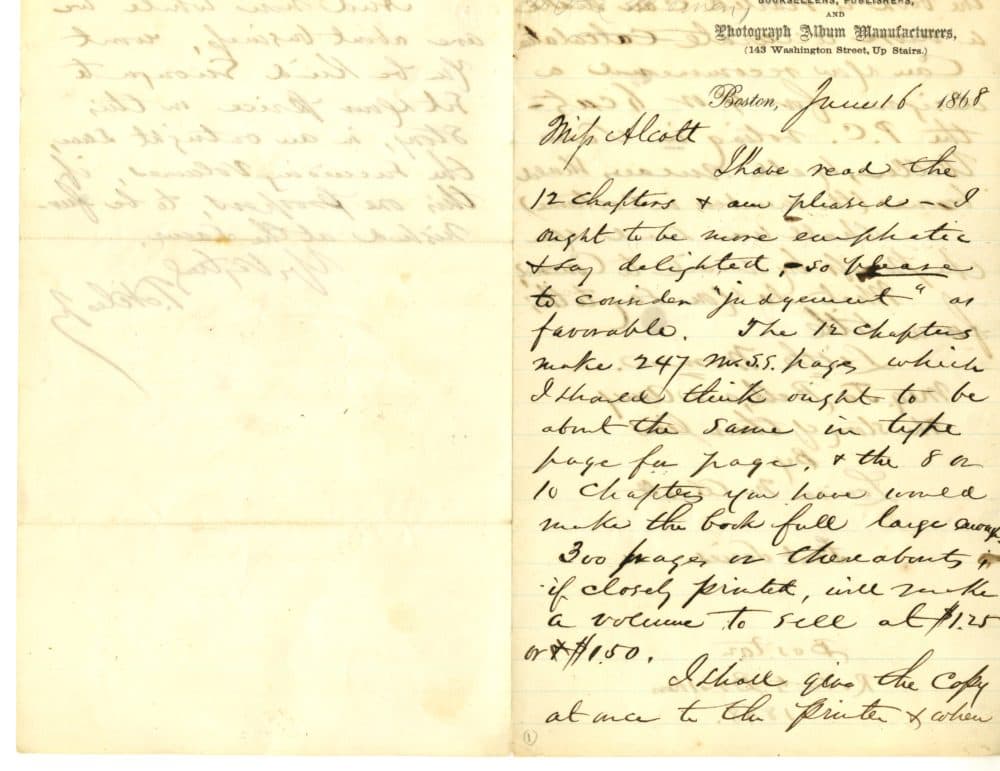 BOOKSELLERS, PUBLISHERS,
AND
Photograph Album Manufacturers,
(143 Washington Street, Up Stairs.)
Boston, June 16 1868
Miss Alcott
I have read the
12 chapters & am pleased – I
ought to be more emphatic
& say delighted, – so please
to consider "judgement" as
favorable. The 12 chapters
make 247 M.S.S. pages which
I should think ought to be
about the same in type
page for page, & the 8 or
10 chapters you have would
make the book full large enough
300 pages or thereabouts,
if closely printed, will make
a volume to sell at $1.25
or $1.50.
I shall give the copy
at once to the printer & when
①